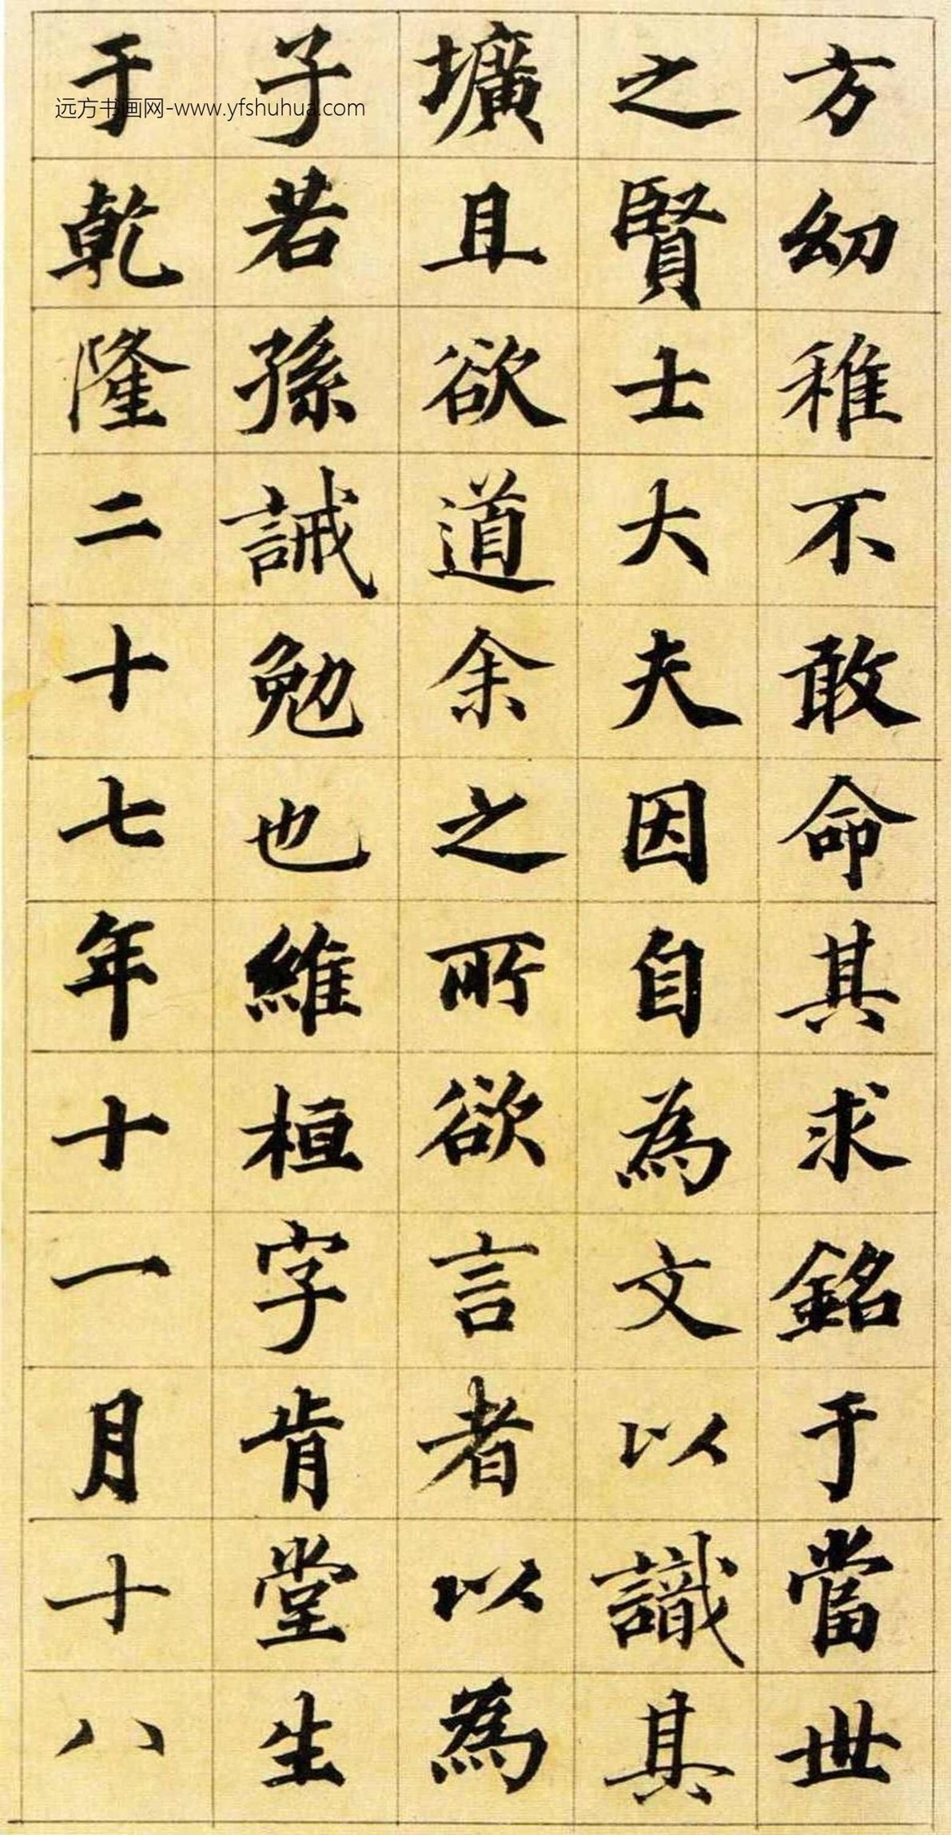 方幼稚不敢命其求銘于當世
之賢士大夫因自為文以識其
壙且欲道余之所欲言者以為
子若孫誡勉也維桓字肯堂生
于乾隆二十七年十一月十八
远方书画网-www.yfshuhua.com